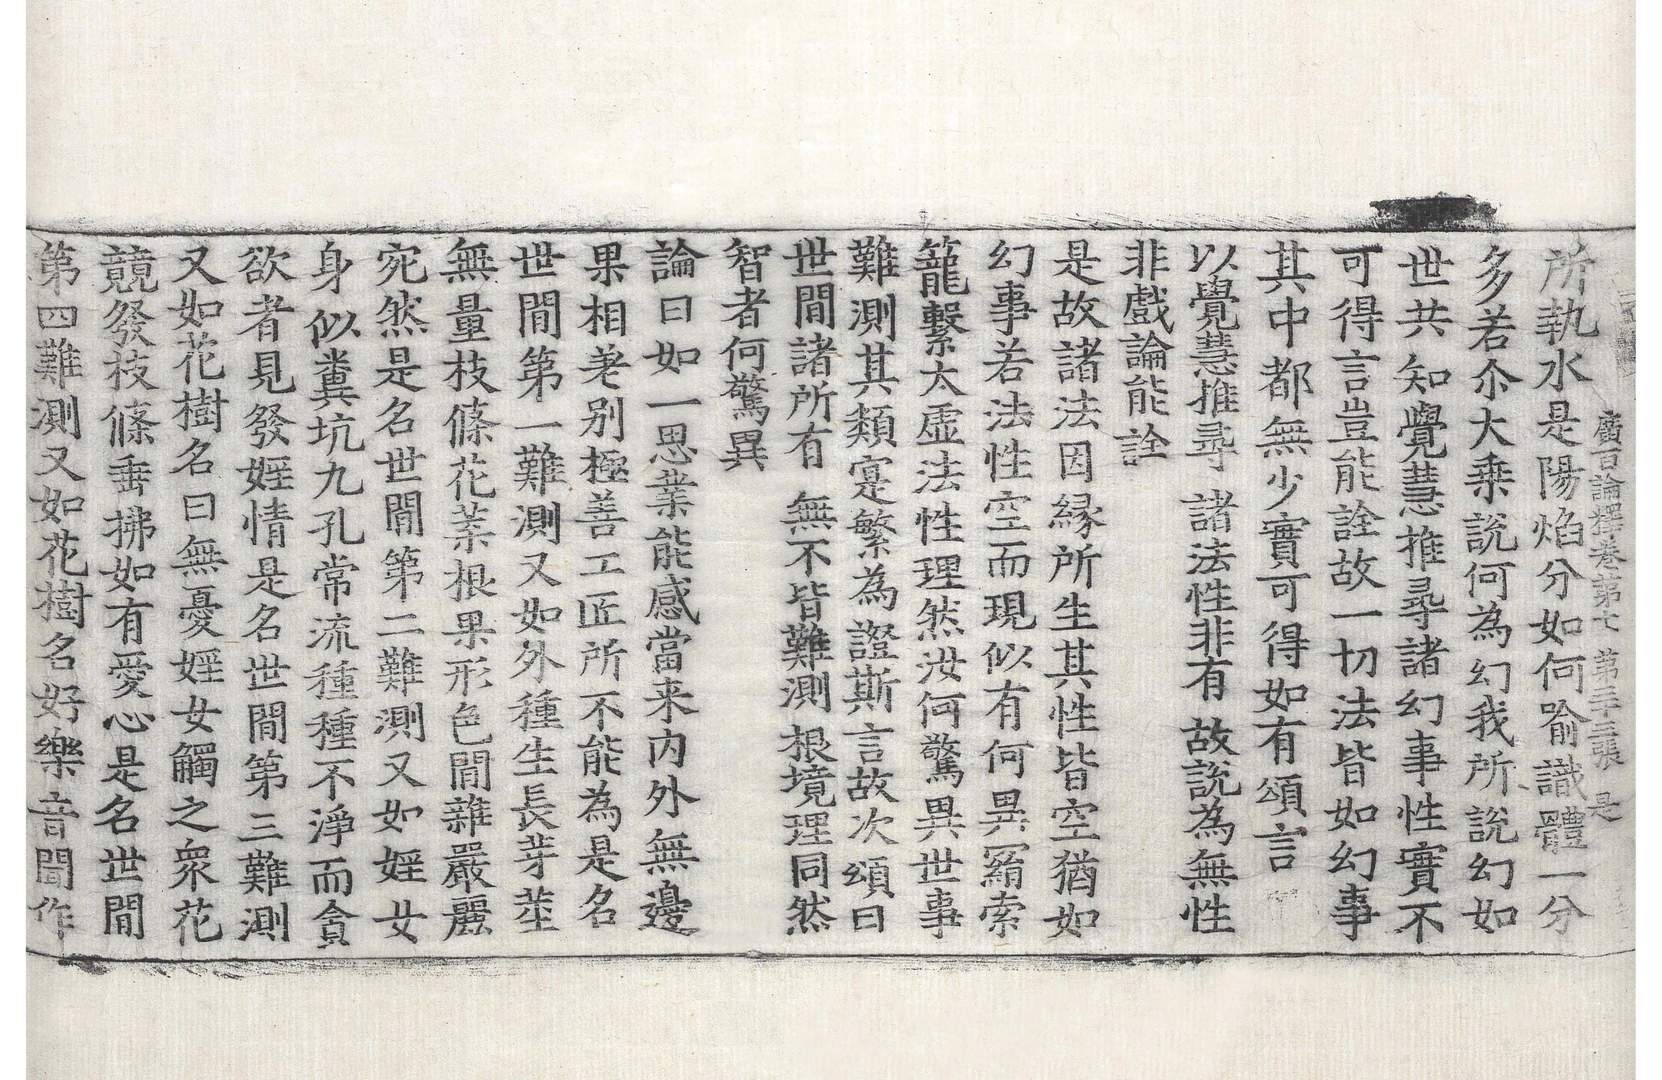 廣百論釋卷第七 第三十三張 是
所執水是陽焰分如何喻識體一分
多若尒大乘說何為幻我所說幻如
世共知覺慧推尋諸幻事性實不
可得言豈能詮故一切法皆如幻事
其中都無少實可得如有頌言
以覺慧推尋 諸法性非有 故說為無性
非戲論能詮
是故諸法因縁所生其性皆空猶如
幻事若法性空而現似有何異羂索
籠繫太虛法性理然汝何驚異世事
難測其類寔繁為證斯言故次頌曰
世閒諸所有 無不皆難測 根境理同然
智者何驚異
論曰如一思業能感當来内外無邊
果相差别極善工匠所不能為是名
世閒第一難測又如外種生長芽莖
無量枝條花葉根果形色閒雜嚴麗
宛然是名世閒第二難測又如婬女
身似糞坑九孔常流種種不淨而貪
欲者見發婬情是名世閒第三難測
又如花樹名曰無憂婬女觸之眾花
競發枝條垂拂如有愛心是名世閒
第四難測又如花樹名好樂音聞作